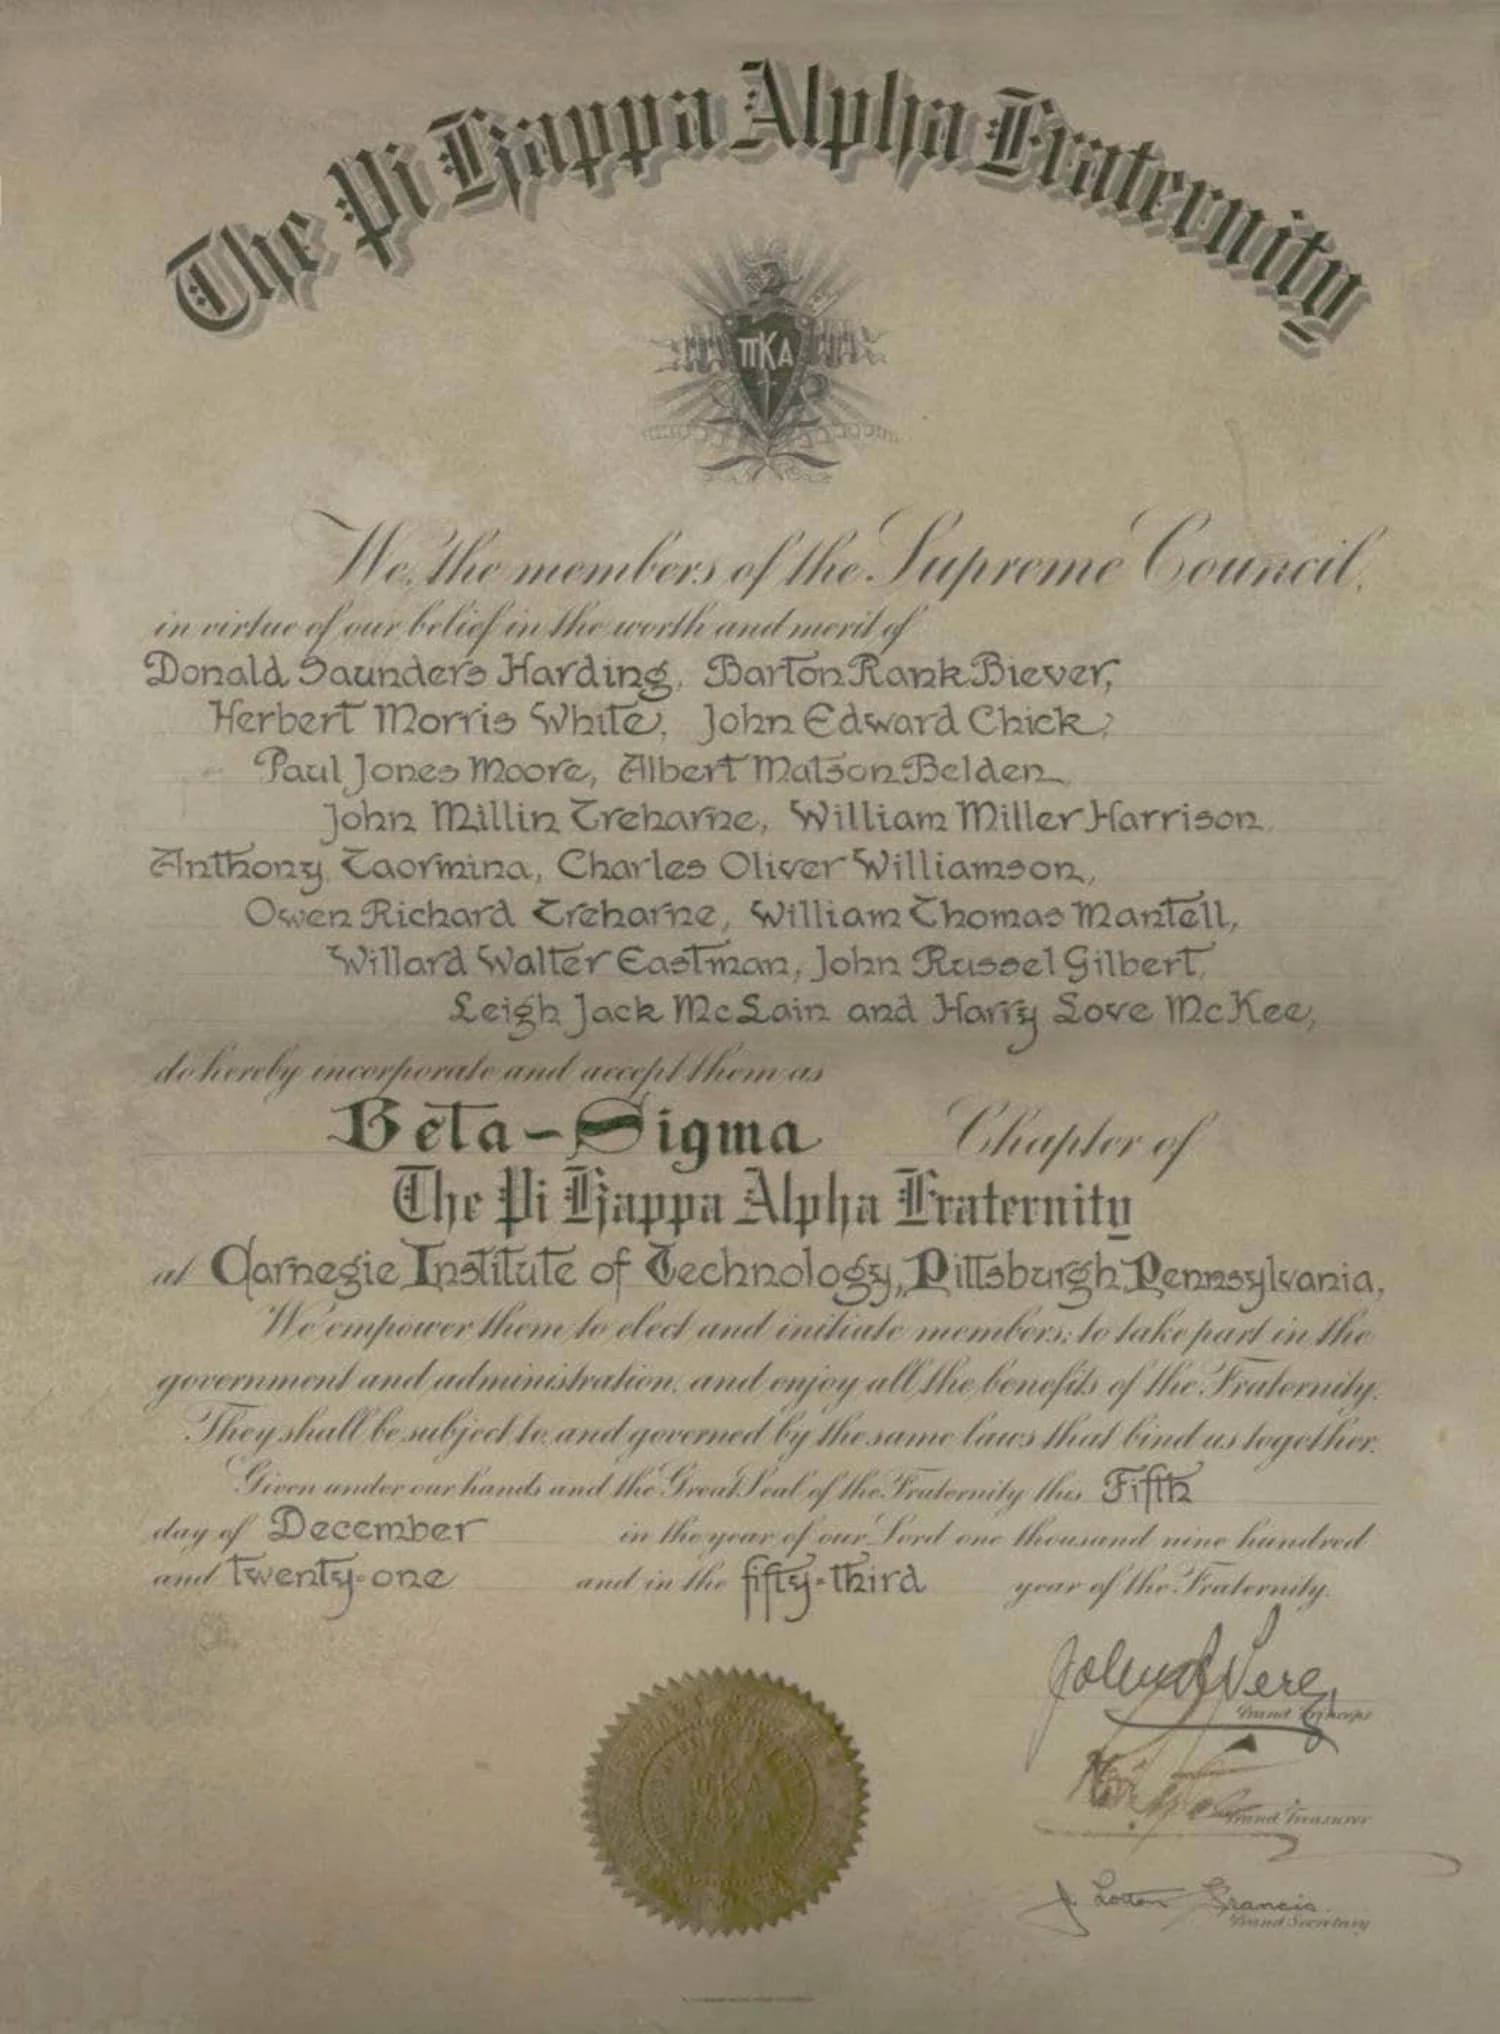 The Pi Kappa Alpha Fraternity
ΠΚΑ
We, the members of the Supreme Council,
in virtue of our belief in the worth and merit of
Donald Saunders Harding, Barton Rank Biever,
Herbert Morris White, John Edward Chick,
Paul Jones Moore, Albert Matson Belden
John Millin Treharne, William Miller Harrison,
Anthony Taormina, Charles Oliver Williamson,
Owen Richard Treharne, William Thomas Mantell,
Willard Walter Eastman, John Russel Gilbert,
Leigh Jack McLain and Harry Love McKee,
do hereby incorporate and accept them as
Beta-Sigma Chapter of
The Pi Kappa Alpha Fraternity
at Carnegie Institute of Technology, Pittsburgh, Pennsylvania,
We empower them to elect and initiate members; to take part in the
government and administration, and enjoy all the benefits of the Fraternity.
They shall be subject to, and governed by the same laws that bind us together.
Given under our hands and the Great Seal of the Fraternity this Fifth
day of December in the year of our Lord one thousand nine hundred
and twenty-one and in the fifty-third year of the Fraternity.
Grand Princeps
Grand Treasurer
J. Francis
Grand Secretary
ΠΚΑ